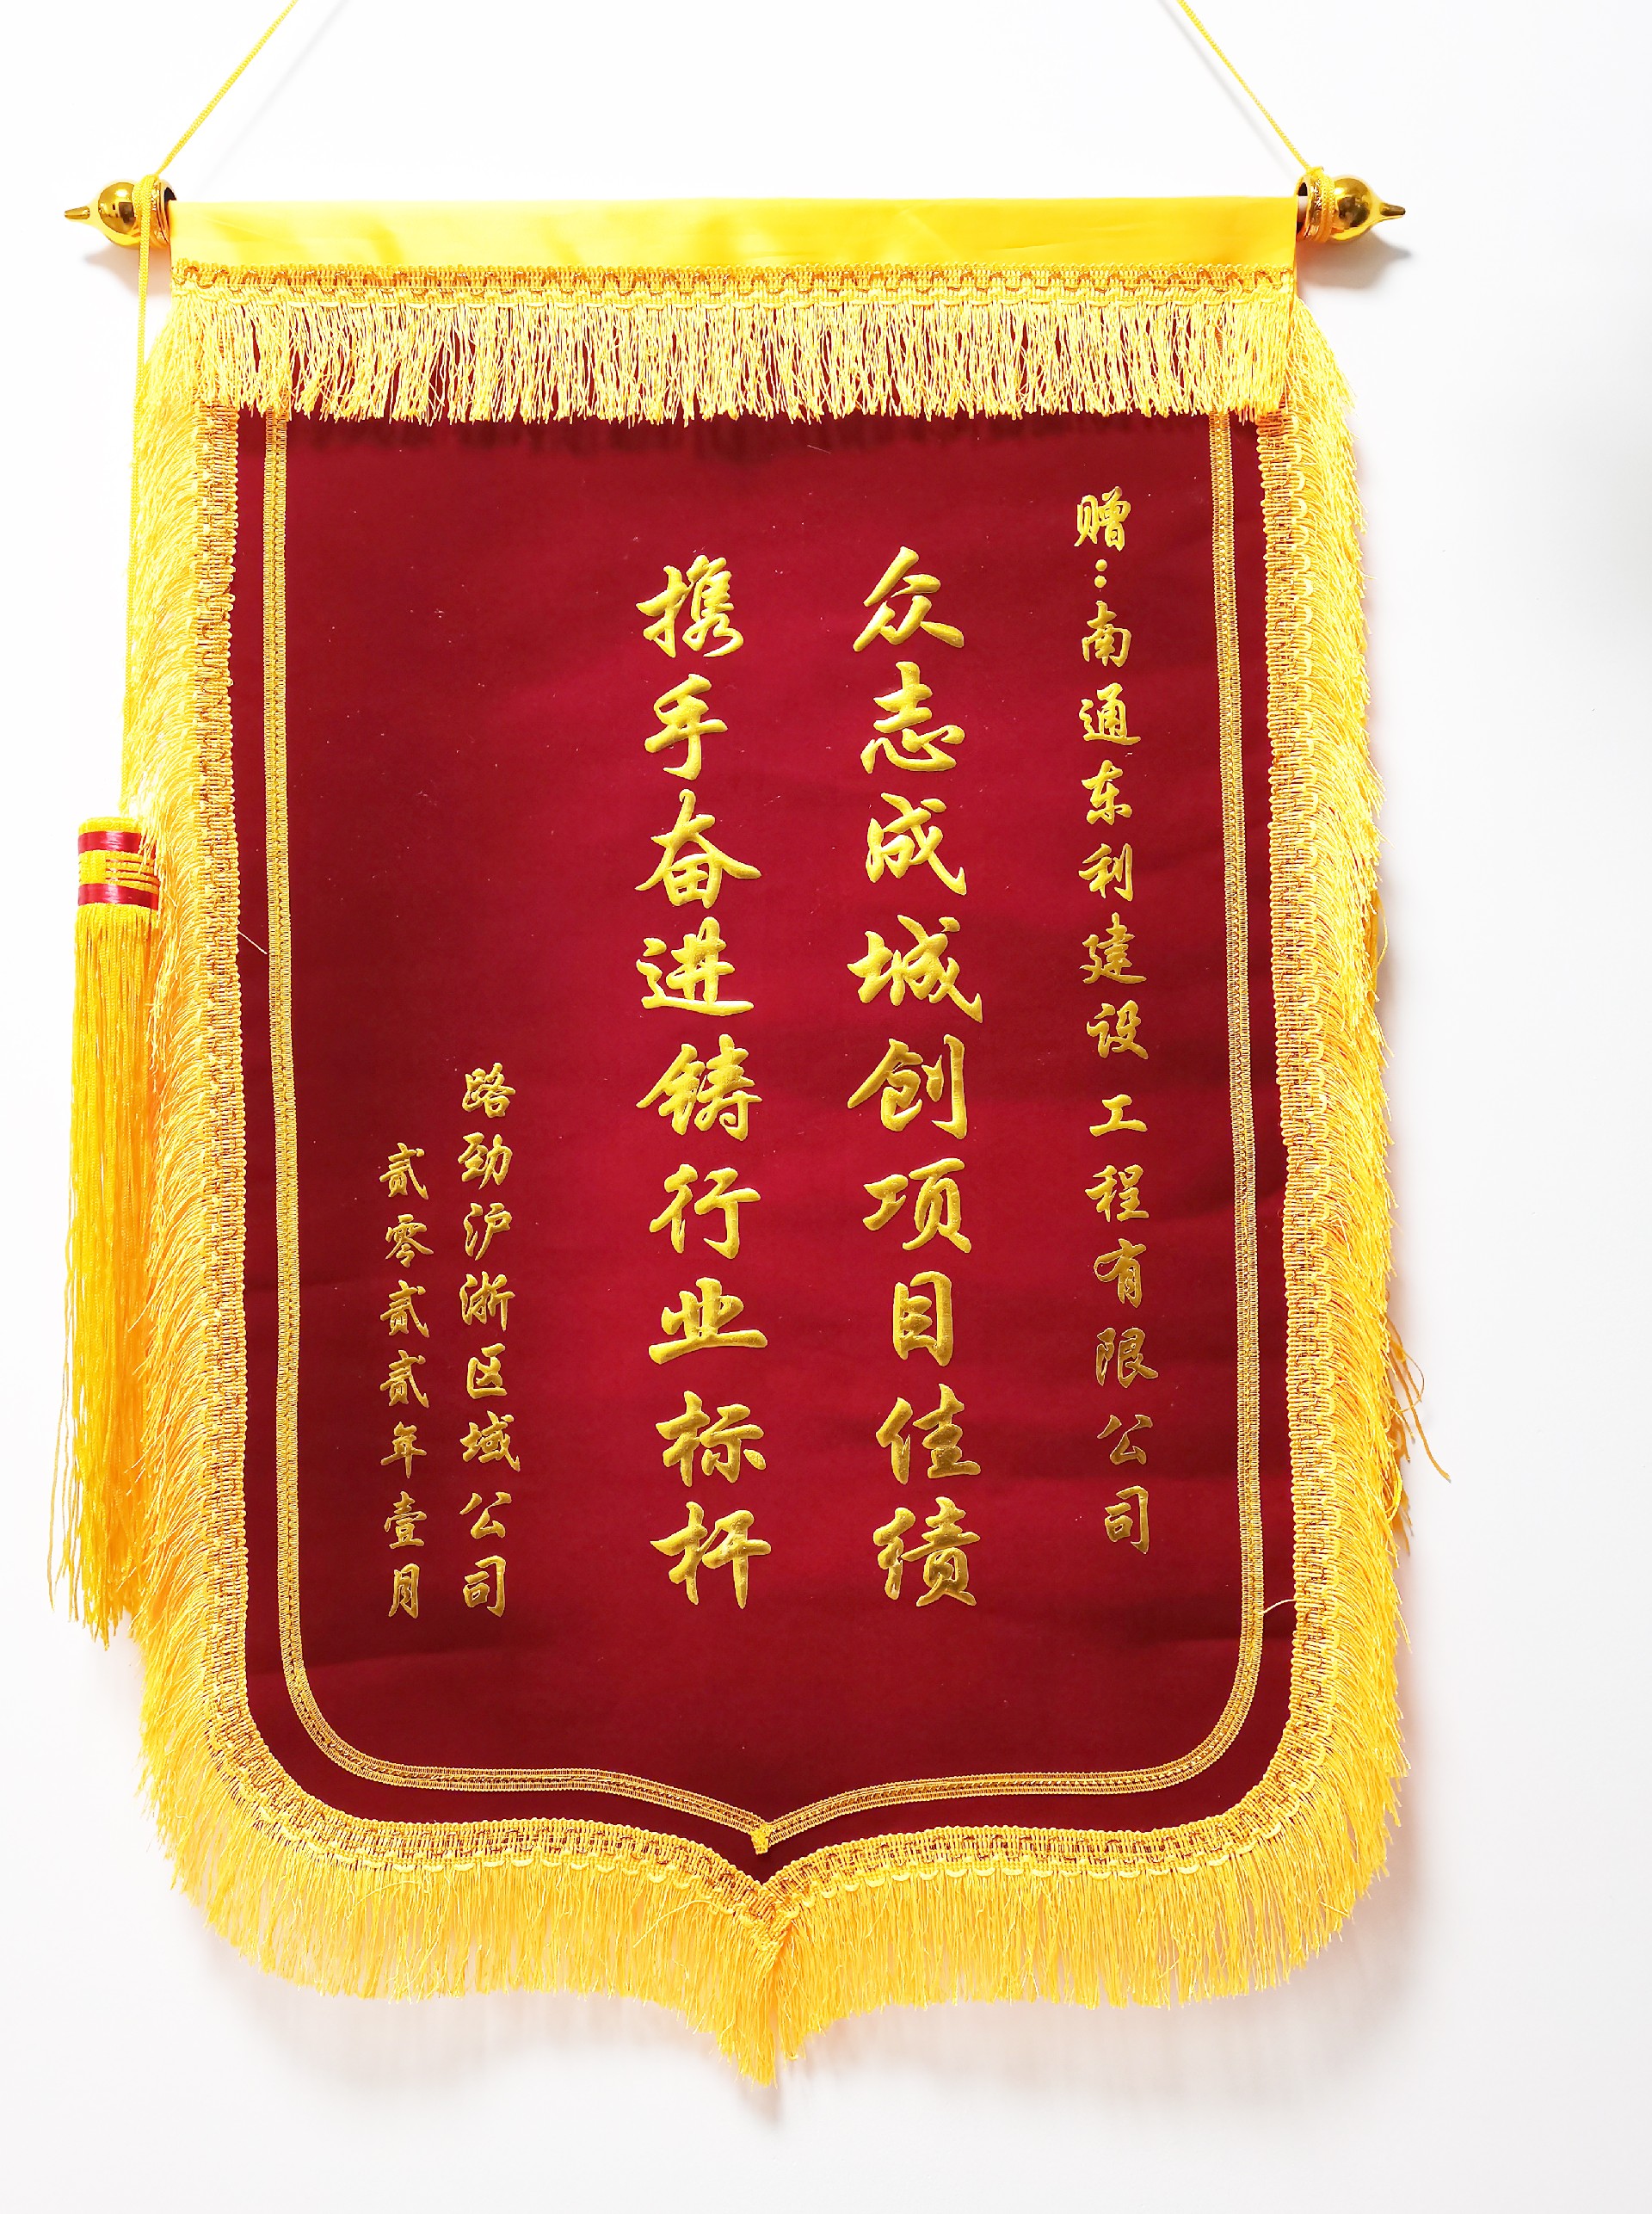 赠：南通东利建设工程有限公司
众志成城创项目佳绩
携手奋进铸行业标杆
路劲沪浙区域公司
贰零贰贰年壹月